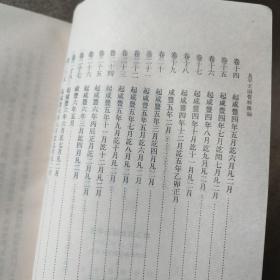 太平天國資料彙編
卷十四 起咸豐四年五月訖六月凡二月
卷十五 起咸豐四年七月訖閏七月凡二月
卷十六 起咸豐四年八月訖九月凡二月
卷十七 起咸豐四年十月訖十一月凡二月
卷十八 起咸豐四年十二月訖五年乙卯正月
卷十九 咸豐五年二月
卷二十 起咸豐五年三月訖四月凡二月
卷二十一 起咸豐五年五月訖六月凡二月
卷二十二 起咸豐五年七月訖八月凡二月
卷二十三 起咸豐五年九月訖十月凡二月
卷二十四
卷二十五 起咸豐六年丙辰正月訖二月凡二月
卷二十六 起咸豐六年